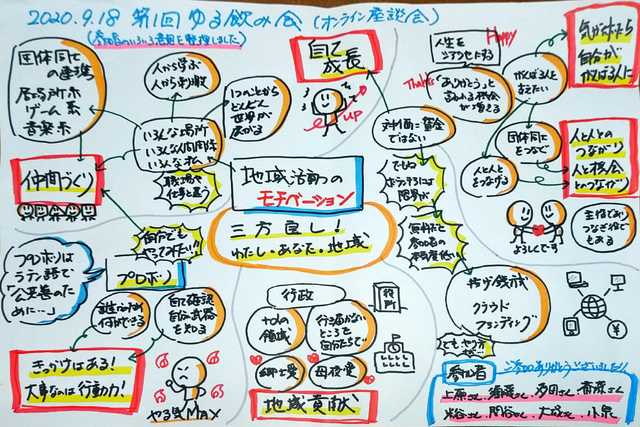 2020.9.18 第1回 ゆる飲み会 (オンライン座談会)
(参加者のいろいろな意見を整理しました)
団体同士
の連携
居場所系
ゲーム系
音楽系
人から学ぶ
人から刺激
1つのことから
どんどん
世界が
広がる
いろんな場所
いろんな人間関係
いろんな私
職場で
仕事と違う
仲間づくり
自己
成長
UP
地域活動の
モチベーション
三方良し!
わたし・あなた・地域
人生を
シアワセにする
Happy
Thanks
「ありがとう」と
言われる機会
が増える
がんばる人を
支えたい
気がついたら
自分が
がんばる人に
対価=賃金
ではない
団体同士
をつなぐ
人と人と
をつなげる
人と人との
つながり
人と機会
とのつながり
よろしくです
主役であり
つなぎ役で
もある
でも
ボランティアには
限界が
無料だと
参加者の
本気度低い
自分でも
やってみたい!!
プロボノは
ラテン語で
「公共善のた
めに…」
プロボノ
自己確認
自分の武器
を知る
何ができる
きっかけはある!
大事なのは行動力!
やる気MAX
行政
領域
行き届かない
ところを
自分たちで
郷土愛
母校愛
地域貢献
役所
投げ銭式
クラウド
ファンディング
でも、やり方が…
参加者
ご参加ありがとうございました!
上原さん、須藤さん、乃田さん、斎藤さん
粕谷さん、関谷さん、大政さん、小泉